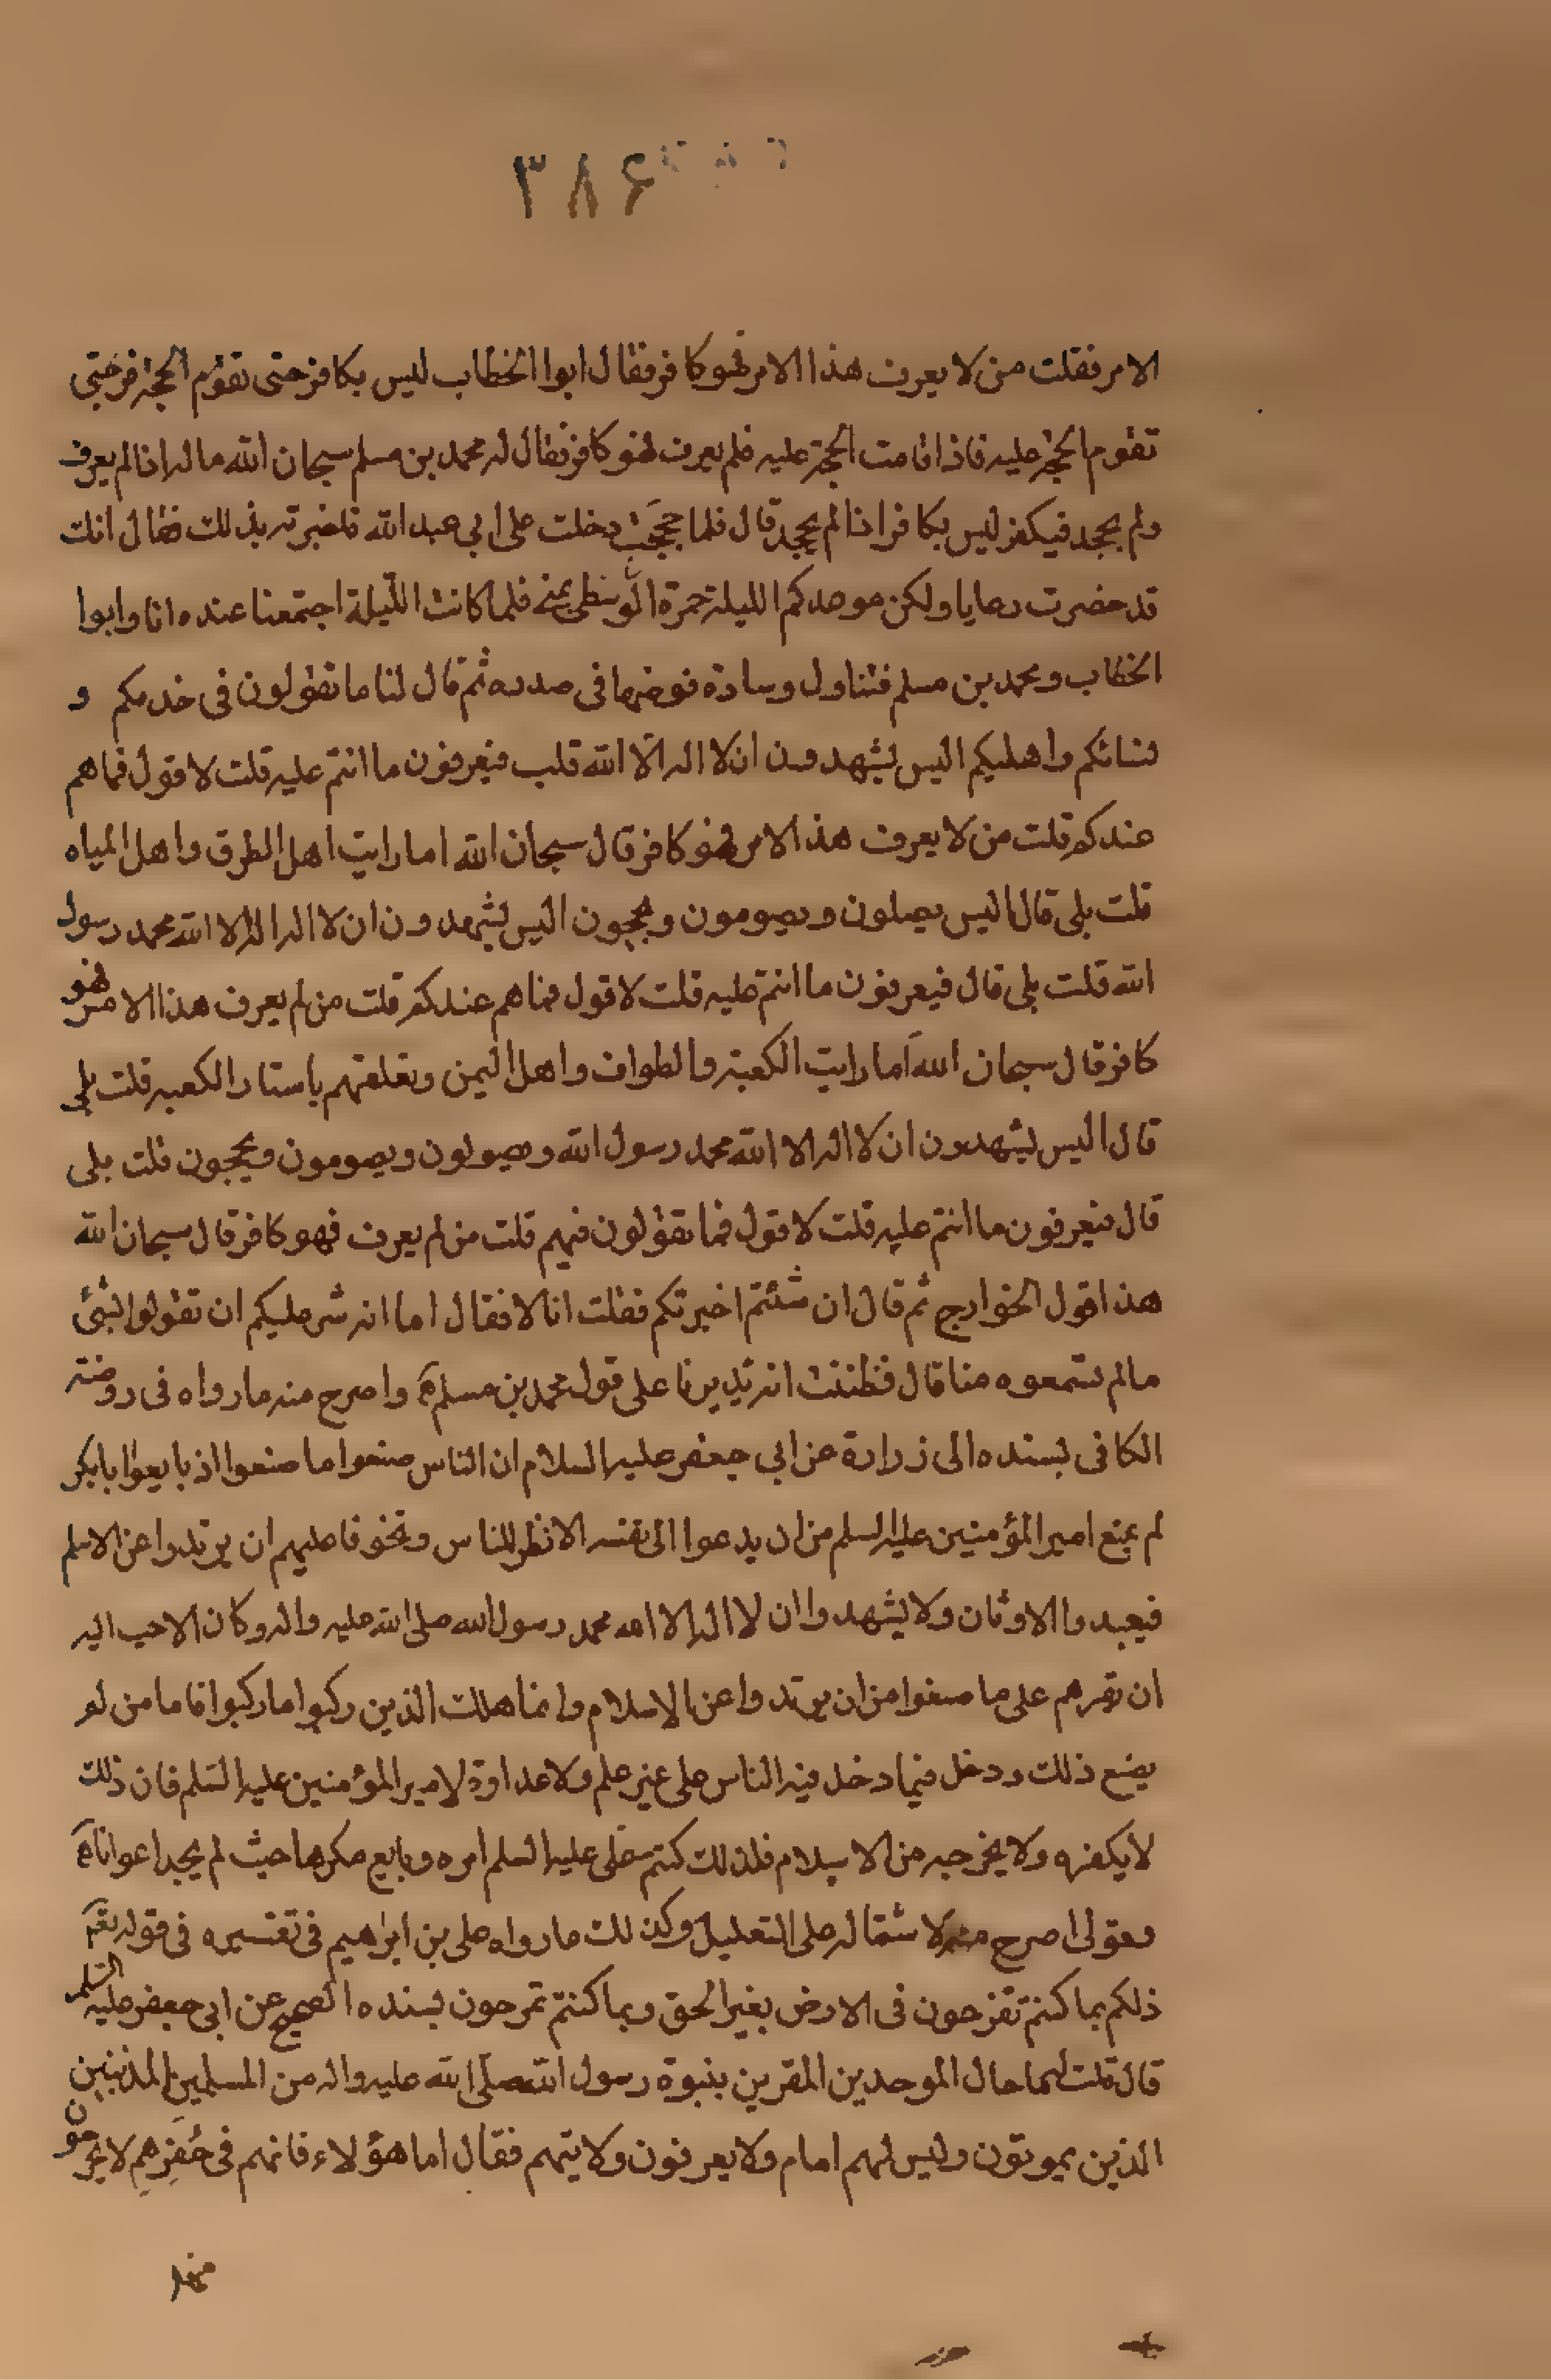 ٣٨۶
الامر فقلت من لا يعرف هذا الامر فهو كافر فقال ابوا الخطاب ليس بكافر حتى تقوم الحجة فرحتى
تقوم الحجة عليه فاذا قامت الحجة عليه فلم يعرف فهو كافر فقال له محمد بن مسلم سبحان الله ما له اذا لم يعرف
ولم يجحد فيكفر ليس بكافر اذا لم يجحد قال فلما حججت دخلت على ابى عبد الله فاخبرته بذلك فقال انك
قد حضرت وغابا ولكن موعدكم الليلة جمرة الوسطى بمنى فلما كانت الليلة اجتمعنا عنده انا وابوا
الخطاب ومحمد بن مسلم فتناول وسادة فوضعها فى صدره ثم قال لنا ما تقولون فى خدمكم و
نسائكم واهليكم اليس يشهدون ان لا اله الا الله قلت فيعرفون ما انتم عليه قلت لا قول فما هم
عندكم قلت من لا يعرف هذا الامر فهو كافر قال سبحان الله اما رايت اهل الطرق واهل المياه
قلت بلى قال اليس يصلون ويصومون ويحجون اليس يشهدون ان لا اله اله الا الله محمد رسول
الله قلت بلى قال فيعرفون ما انتم عليه قلت لا قول فما هم عندكم قلت من لم يعرف هذا الامر فهو
كافر قال سبحان الله اما رايت الكعبة والطواف واهل اليمن وتعلقهم باستار الكعبه قلت بلى
قال اليس يشهدون ان لا اله الا الله محمد رسول الله ويصولون ويصومون ويحجون قلت بلى
قال فيعرفون ما انتم عليه قلت لا قول فما تقولون فيهم قلت من لم يعرف فهو كافر قال سبحان الله
هذا قول الخوارج ثم قال ان شئتم اخبرتكم فقلت انا لا فقال اما انه شر عليكم ان تقولوا بشئ
ما لم تسمعوه منا قال فظننت انه يديرنا على قول محمد بن مسلم واصرح منه ما رواه فى روضة
الكافى بسنده الى زرارة عن ابي جعفر عليه السلام ان الناس صنعوا ما صنعوا اذ بايعوا بابكر
لم يمنع امير المؤمنين عليه السلم من ان يدعوا الى نفسه الا نظر للناس وتخوفا عليهم ان يرتدوا عن الاسلم
فيعبدوا الاوثان ولا يشهدوا ان لا اله الا الله محمد رسول الله صلى الله عليه واله وكان الاحب اليه
ان تقرهم على ما صنعوا من ان يرتدوا عن الاسلام وانما هلك الذين ركبوا ما ركبوا فاما من لم
يصنع ذلك ودخل فيما دخل فيه الناس على غير علم ولا عداوة لامير المؤمنين عليه السلم فان ذلك
لا يكفره ولا يخرجه من الاسلام فلذلك كتم على عليه السلم امره وبايع مكرها حيث لم يجد اعوانا
وقولى اصرح منه لاشتماله على التعليل وكذلك ما رواه على بن ابراهيم فى تفسيره فى قوله تعم
ذلكم بما كنتم تفرحون فى الارض بغير الحق وبما كنتم تمرحون بسنده الصحيح عن ابى جعفر عليه السلم
قال قلت لهما حال الموحدين المقرين بنبوة رسول الله صلى الله عليه واله من المسلمين المذنبين
الذين يموتون وليس لهم امام ولا يعرفون ولايتهم فقال اما هؤلاء فانهم فى حفرهم لا يخرجون
منها